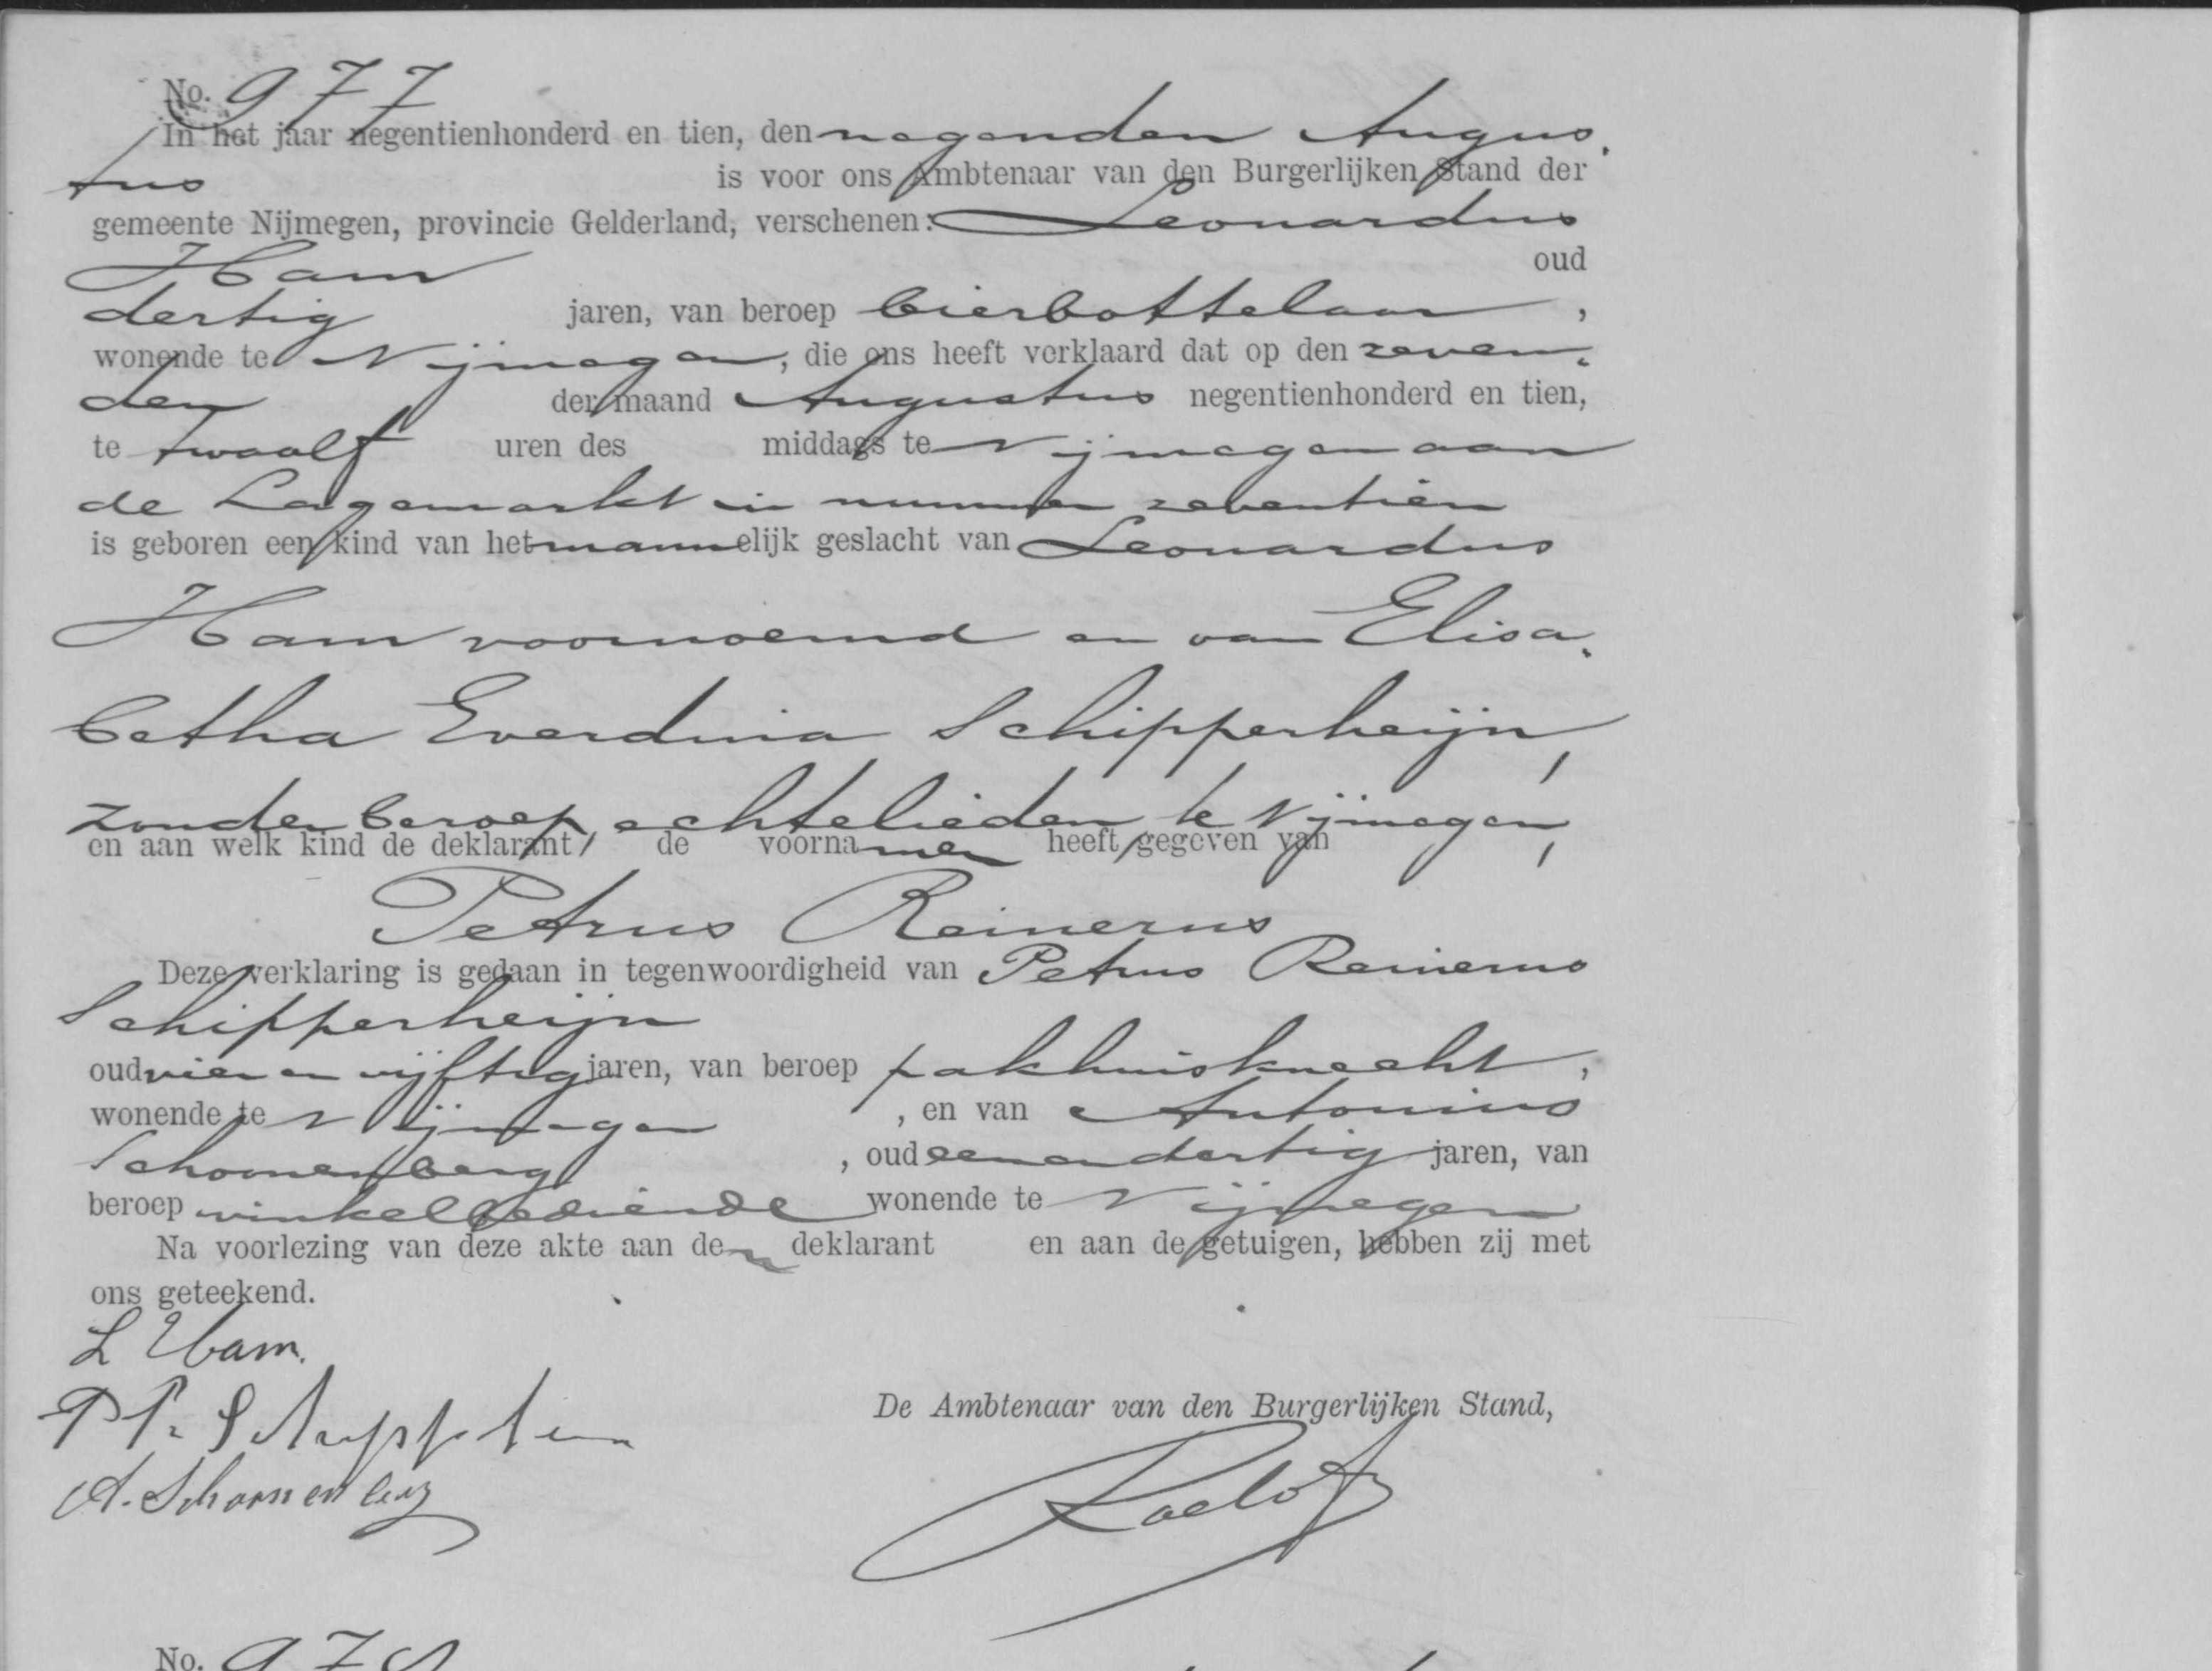 No. 977
In het jaar negentienhonderd en tien, den negenden Augus
tus is voor ons Ambtenaar van den Burgerlijken Stand der
gemeente Nijmegen, provincie Gelderland, verschenen: Leonardus
Ham oud
dertig jaren, van beroep bierbottelaar ,
wonende te Nijmegen, die ons heeft verklaard dat op den zeven-
den der maand Augustus negentienhonderd en tien,
te twaalf uren des middags te Nijmegen aan
de Lagemarkt in nummer zeventien
is geboren een kind van het mannelijk geslacht van Leonardus
Ham voornoemd en van Elisa-
betha Everdina Schipperheijn,
zonder beroep, echtelieden te Nijmegen,
en aan welk kind de deklarant, de voornamen heeft gegeven van
Petrus Reinerus
Deze verklaring is gedaan in tegenwoordigheid van Petrus Reinerus
Schipperheijn
oud vier en vijftig jaren, van beroep pakhuisknecht,
wonende te Nijmegen , en van Antonius
Schoonenberg , oud eenendertig jaren, van
beroep winkelbediende wonende te Nijmegen
Na voorlezing van deze akte aan den deklarant en aan de getuigen, hebben zij met
ons geteekend.
L Ham.
P R
De Ambtenaar van den Burgerlijken Stand,
A. Schoonenberg
Roelofs
No. 978